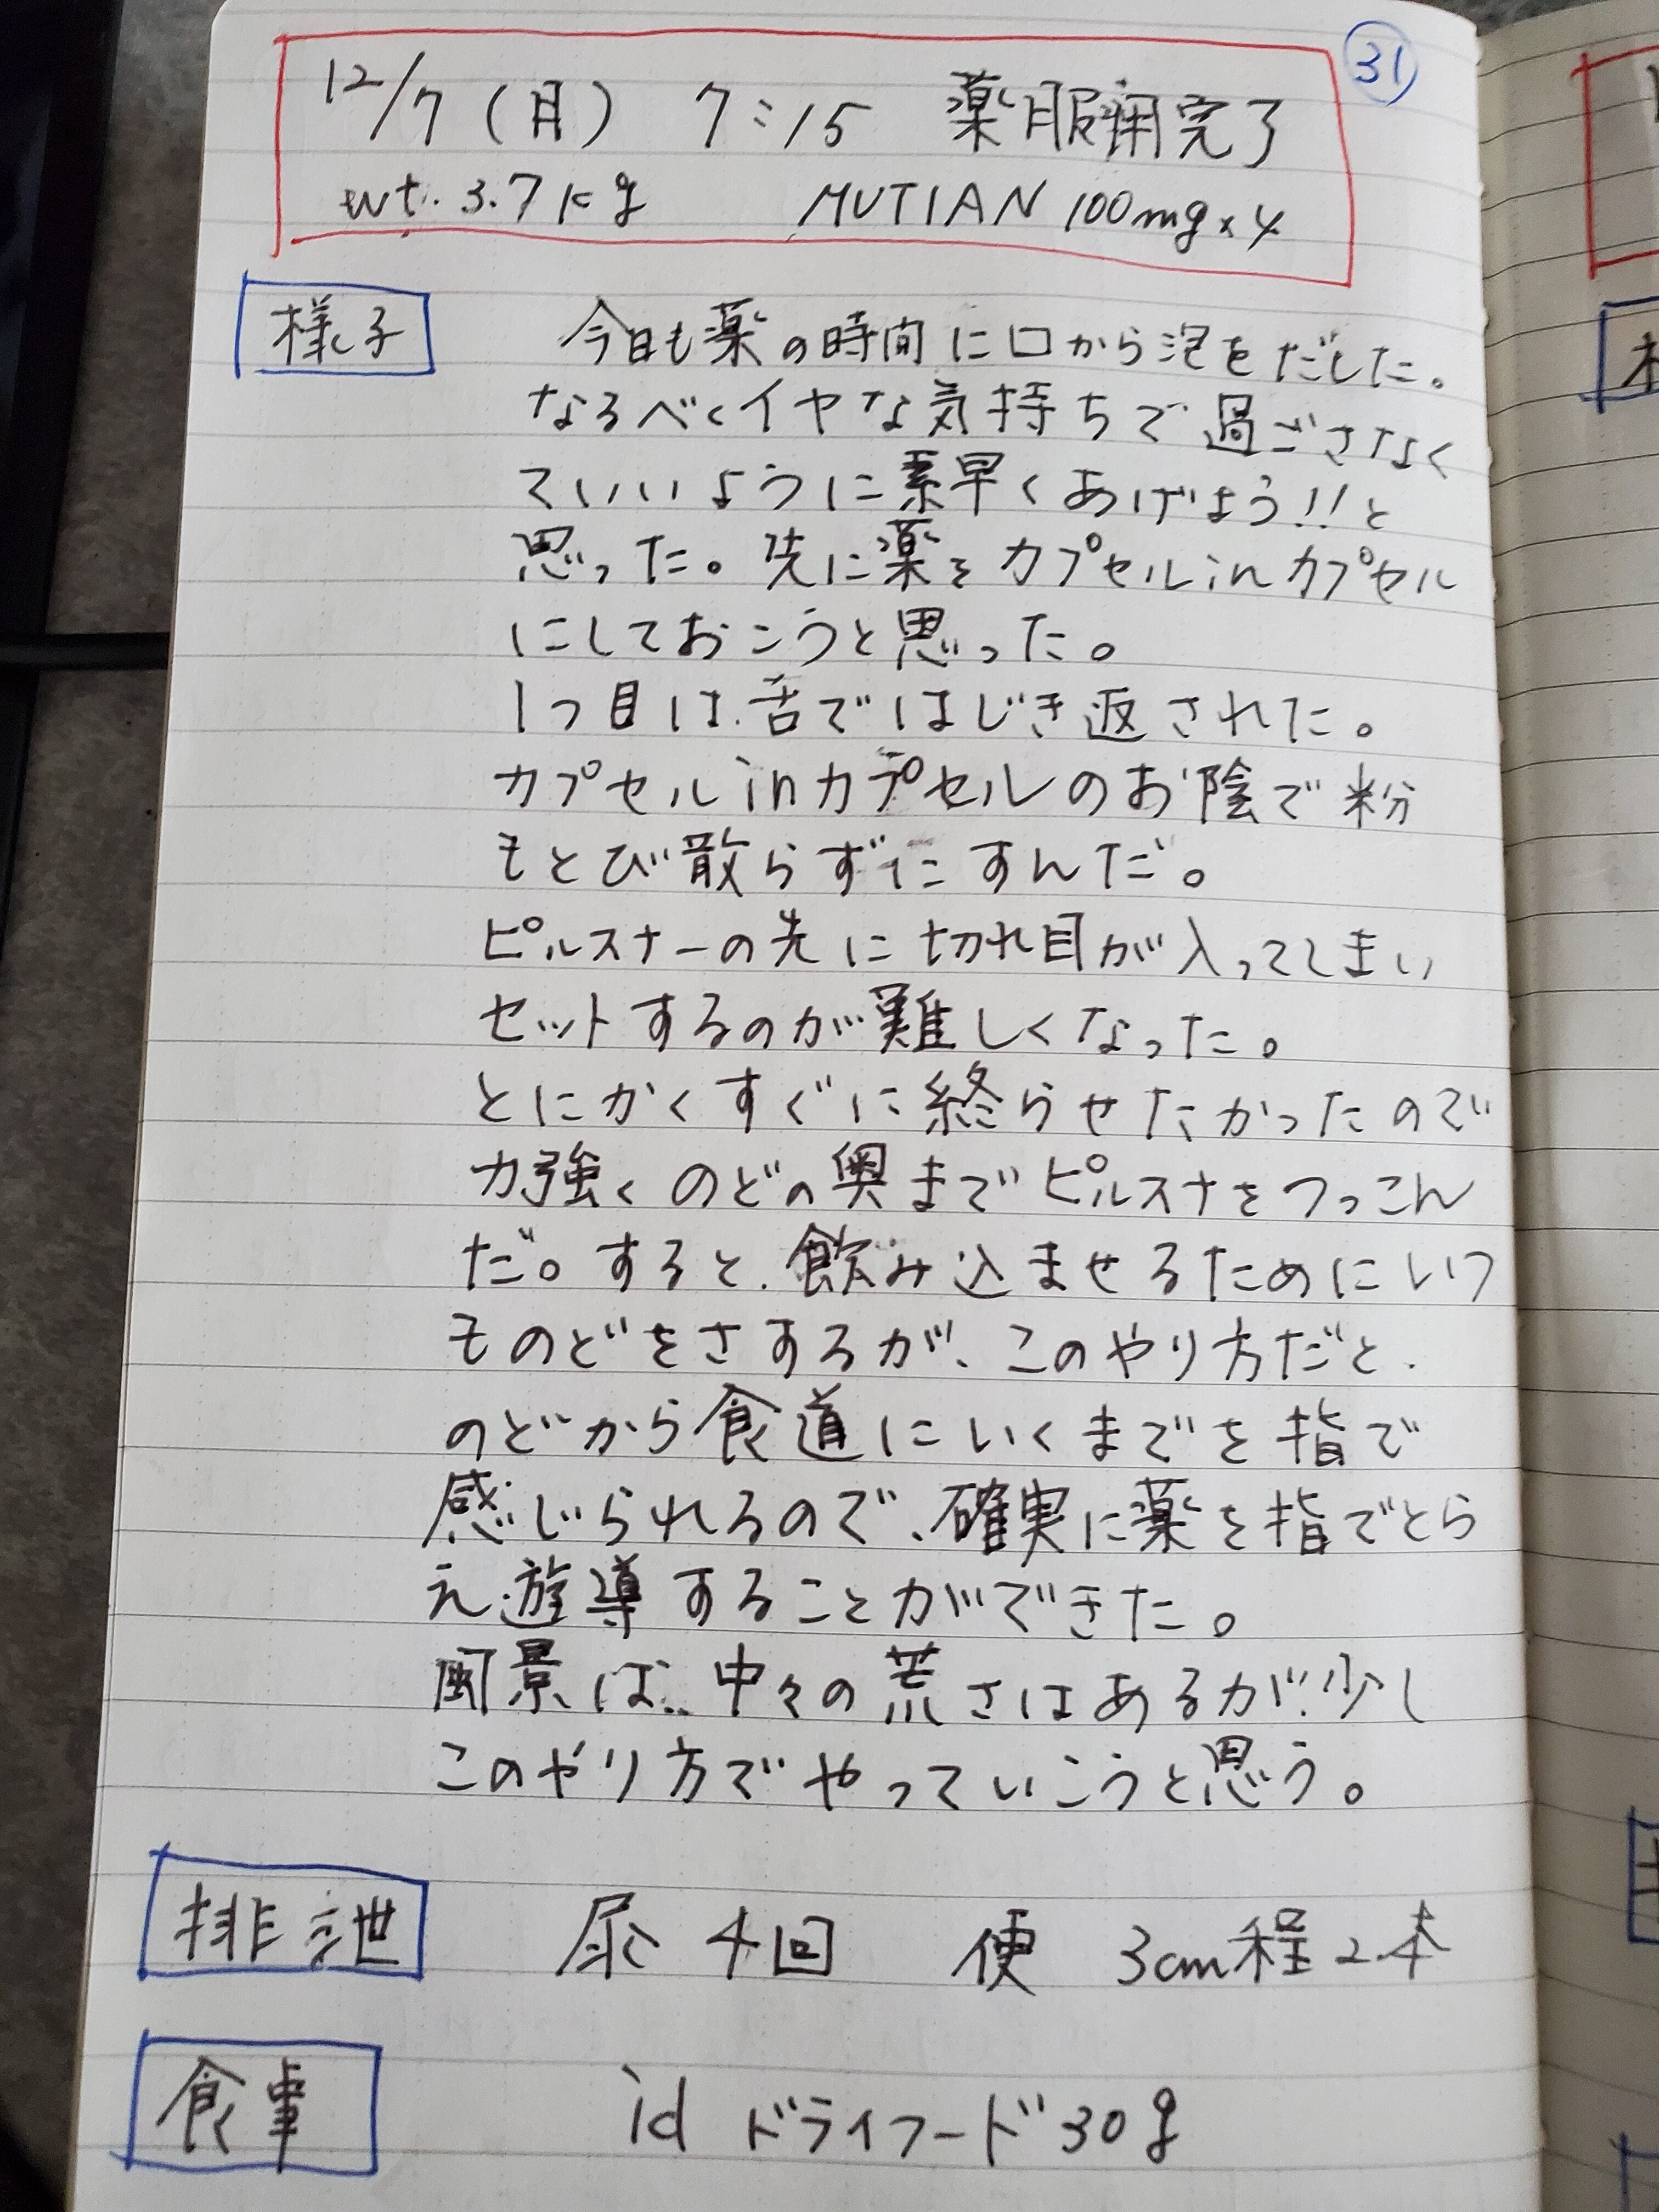 31
12/7(月) 7:15 薬服用完了
wt. 3.7kg MUTIAN 100mg×4
様子
今日も薬の時間に口から泡をだした。
なるべくイヤな気持ちで過ごさなく
ていいように素早くあげよう!!と
思った。先に薬をカプセルinカプセル
にしておこうと思った。
1つ目は舌ではじき返された。
カプセルinカプセルのお陰で粉
もとび散らずにすんだ。
ピルスナーの先に切れ目が入ってしまい
セットするのが難しくなった。
とにかくすぐに終らせたかったので
力強くのどの奥までピルスナをつっこん
だ。すると、飲み込ませるためにいつ
ものどをさするが、このやり方だと、
のどから食道にいくまでを指で
感じられるので、確実に薬を指でとら
え遊導することができた。
風景は、中々の荒さはあるが、少し
このやり方でやっていこうと思う。
排泄 尿 4回 便 3cm程2本
食事 id ドライフード30g